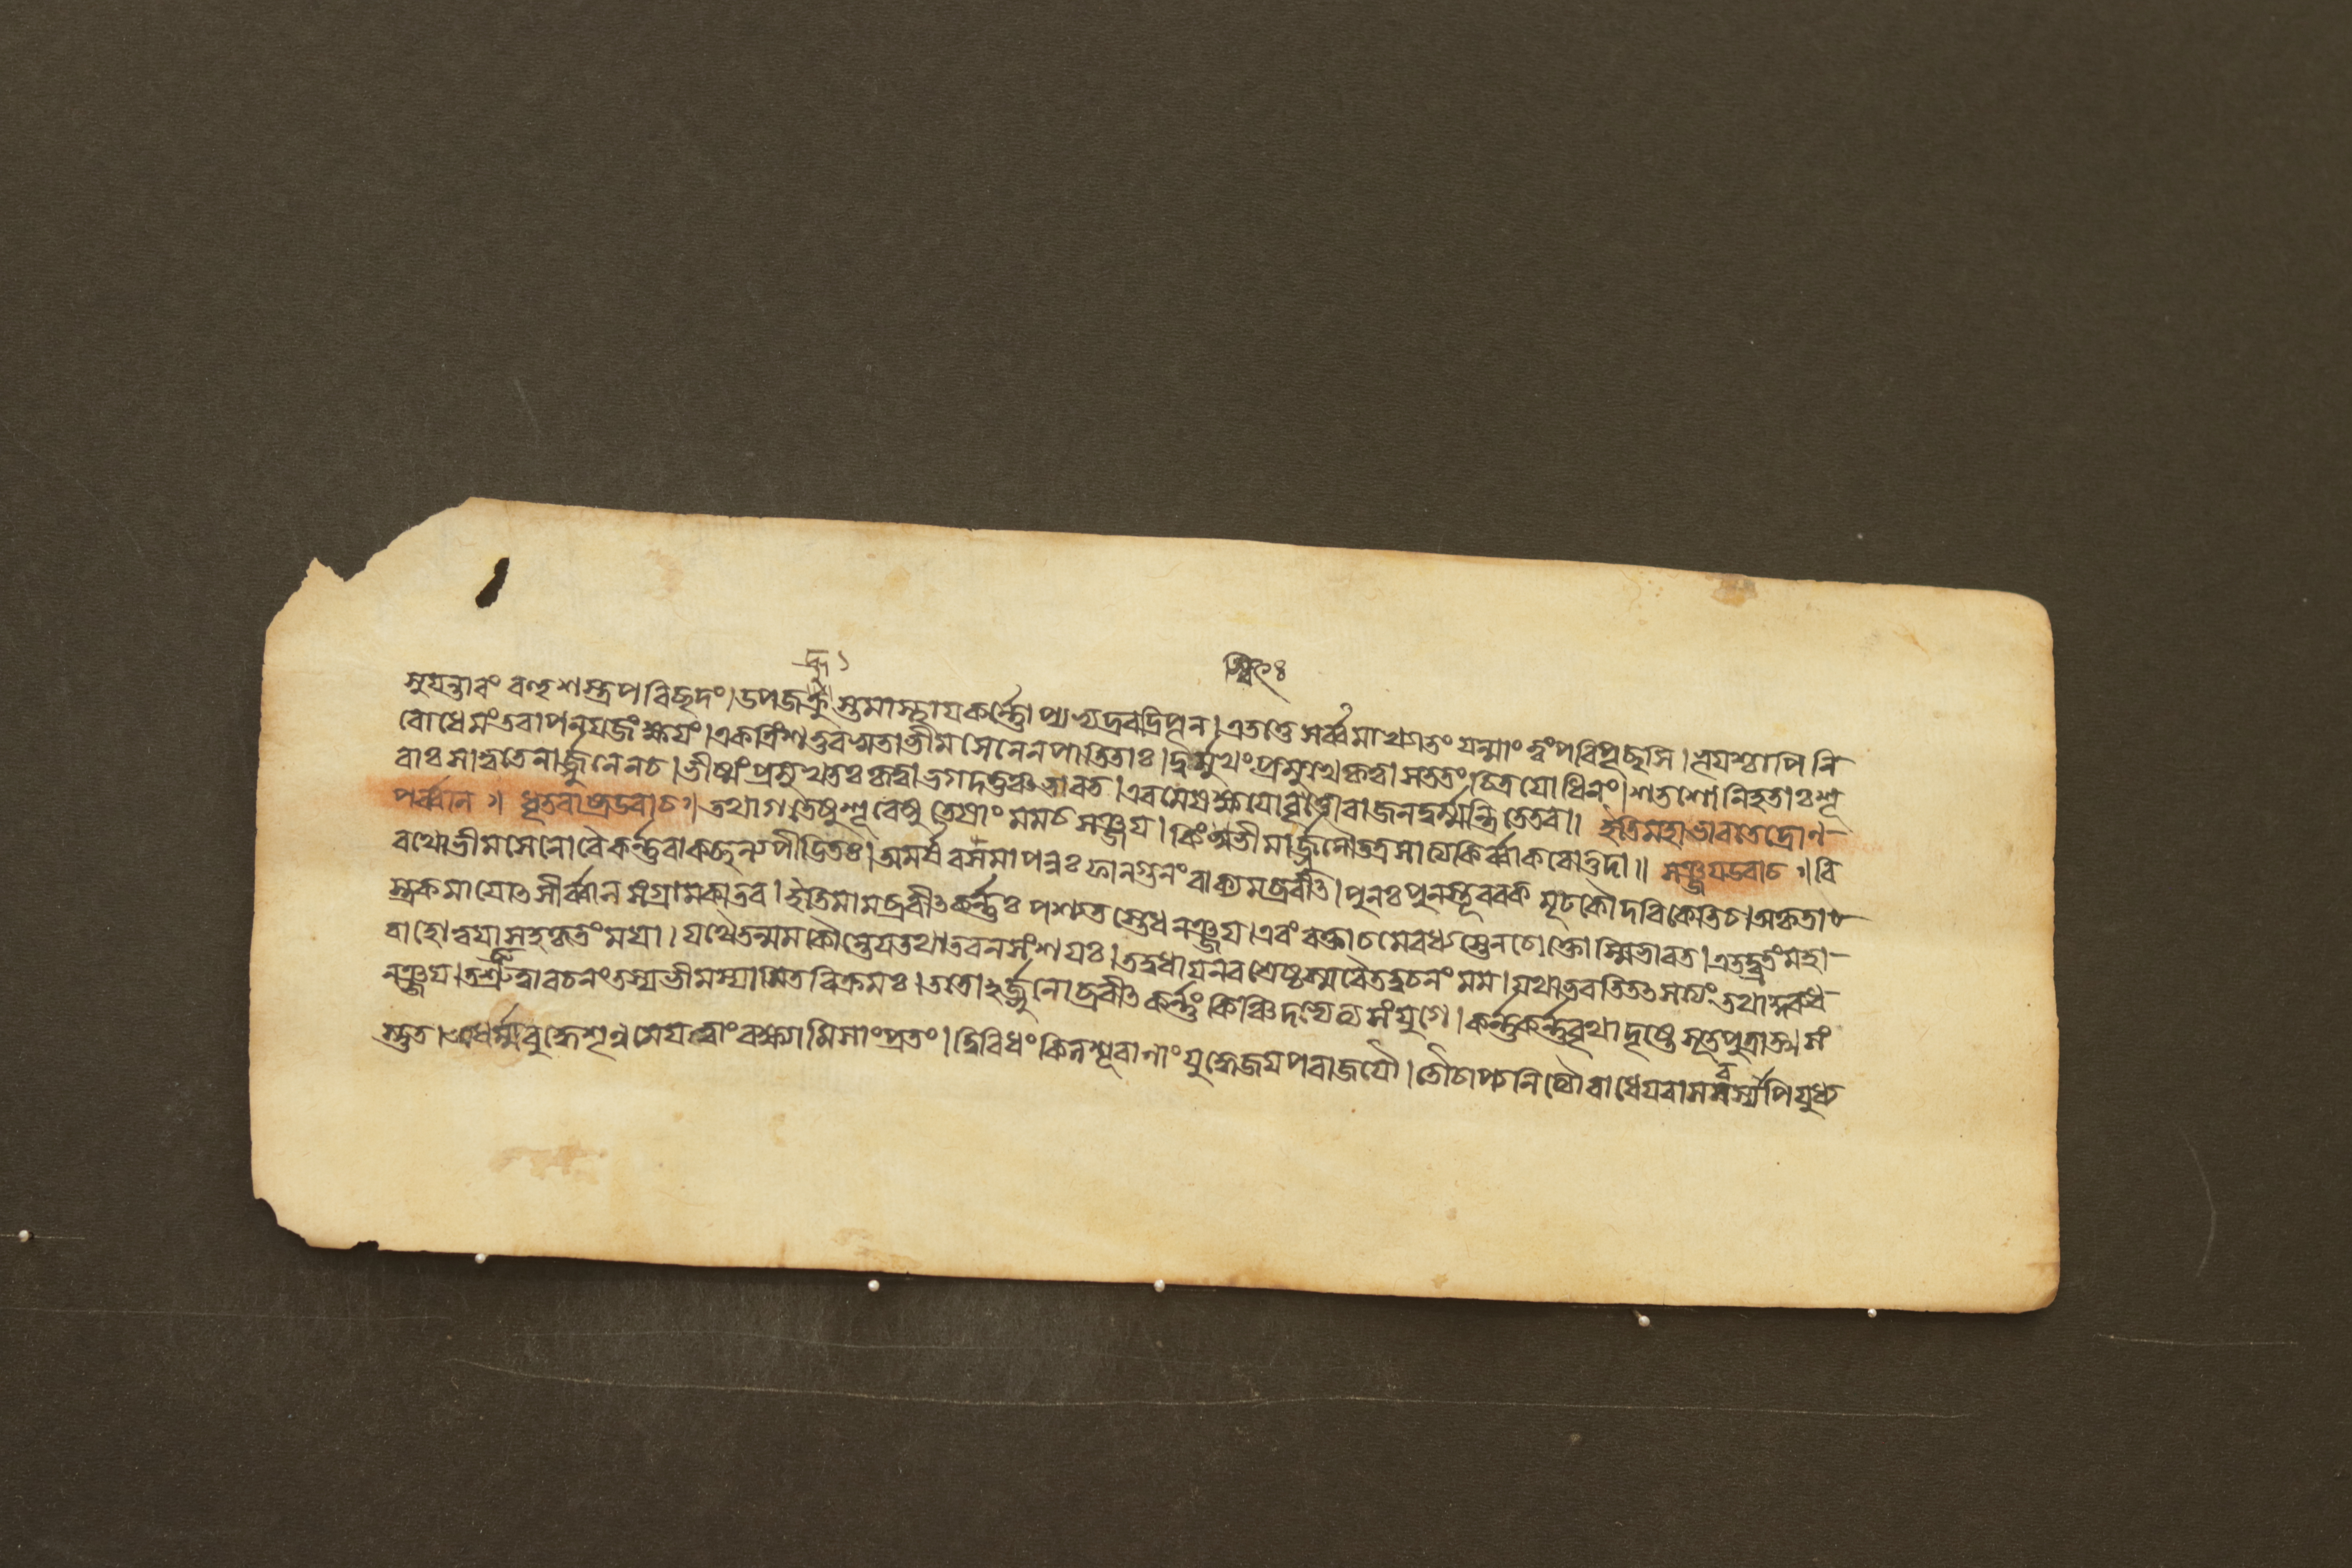 সুযন্তারং বহুশস্ত্রপরিছদং। উপজহ্রুস্তমাস্থাযকর্ন্নোপ্যভ্যদ্রবদ্রিপূন। এতত্তেসর্ব্বমাখ্যাতং যন্মাং ত্বংপরিপৃছসি। ভূযশ্চাপিনি
বোধেমংতবাপনযজংক্ষযং। একত্রিংশত্তবসুতাভীমসেনেনপাতিতাঃ। দুর্ম্মুখং প্রমুখেকৃত্বাসততংচিত্রযোধিনং। শতশোনিহতাঃশূ
রাঃসাত্বতেনার্জ্জুনেনচ। ভীষ্মংপ্রমুখতঃকৃত্বাভগদত্তঞ্চভারত। এবমেষক্ষযোবৃত্তোরাজনদুর্ম্মন্ত্রিতেতব॥ ইতিমহাভারতেদ্রোন-
পর্ব্বান॥ ধৃতরাষ্ট্রউবাচ॥ তথাগতেষুশূরেষু তেষাং মমচসঞ্জয। কিং ভীমার্জ্জুনৌতত্রসাত্যকির্ব্বাকরোত্তদা॥ সঞ্জযউবাচ॥ বি
রথোভীমসেনোবৈকর্ন্নবাক পীডিতঃ। অমর্ষবসমাপন্নঃ ফালগুনংবাক্যমব্রবীৎ। পুনঃপুনস্তূবরক মূঢকৌদরিকেতিচ। অকৃতা-
স্ত্রকমাযোৎসীর্ব্বাল সংগ্রামকাতর। ইতিমামব্রবীৎকর্ন্নঃ পশ্যতস্তেধনঞ্জয। এবং বক্তাচমেবধ্যস্তেনচোক্তোস্মিভারত। এতদ্ব্রতংমহা-
বাহোত্বযাসহকৃতংমযা। যথৈতন্মমকৌন্তেযতথাতবনসংশযঃ। তদ্বধাযনরশ্রেষ্ঠস্মরৈতদ্বচনং মম। যথাভবতিতৎসত্যং তথাকুরুধ
নঞ্জয। তচ্ছ্রুত্বাবচনংতস্যভীমস্যামিতবিক্রমঃ। ততোঽর্জ্জুনোব্রবীৎ কর্ন্নং কিঞ্চিদভ্যেত্যসংযুগে। কর্ন্নকর্ন্নবৃথাদৃষ্টে সূতপুত্রাত্মসং
স্তুত। অধর্ম্মবুদ্ধেশৃনুমেযত্ত্বাংবক্ষ্যামিসাংপ্রতং। দ্বিবিধং কিলশূরানাং যুদ্ধেজযপরাজযৌ। তৌচাপ্যনিত্যৌরাধেযবাসবস্যাপিযুধ্য